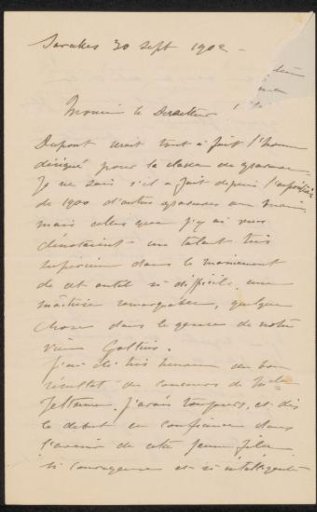 30 Sept 1902 -
Monsieur le Directeur
Dupont serait tout à fait l'homme
désigné pour la classe de gravure.
Je ne sais s'il a fait depuis l'exposition
de 1900 d'autres gravures au burin
mais celles que j'y ai vues
dénotaient un talent très
supérieur dans le maniement
de cet outil si difficile, une
maîtrise remarquable, quelque
chose dans le genre de notre
vieux
J'ai été très heureux du bon
résultat du concours de
J'avais toujours, et dès
le début eu confiance dans
l'avenir de cette jeune fille
si courageuse et si intelligente